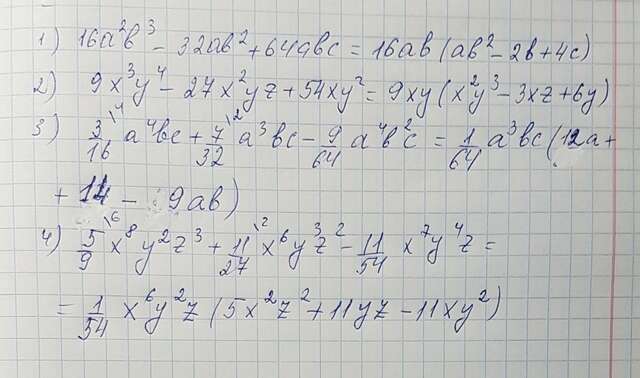 1) 16a²b³ - 32ab² + 64abc = 16ab (ab² - 2b + 4c)
2) 9x³y⁴ - 27x²yz + 54xy² = 9xy (x²y³ - 3xz + 6y)
3) 3/16 \4 a⁴bc + 7/32 \2 a³bc - 9/64 a⁴b²c = 1/64 a³bc (12a +
+ 14 - 9ab)
4) 5/9 \6 x⁸y²z³ + 11/27 \2 x⁶y³z² - 11/54 x⁷y⁴z =
= 1/54 x⁶y²z (5x²z² + 11yz - 11xy²)